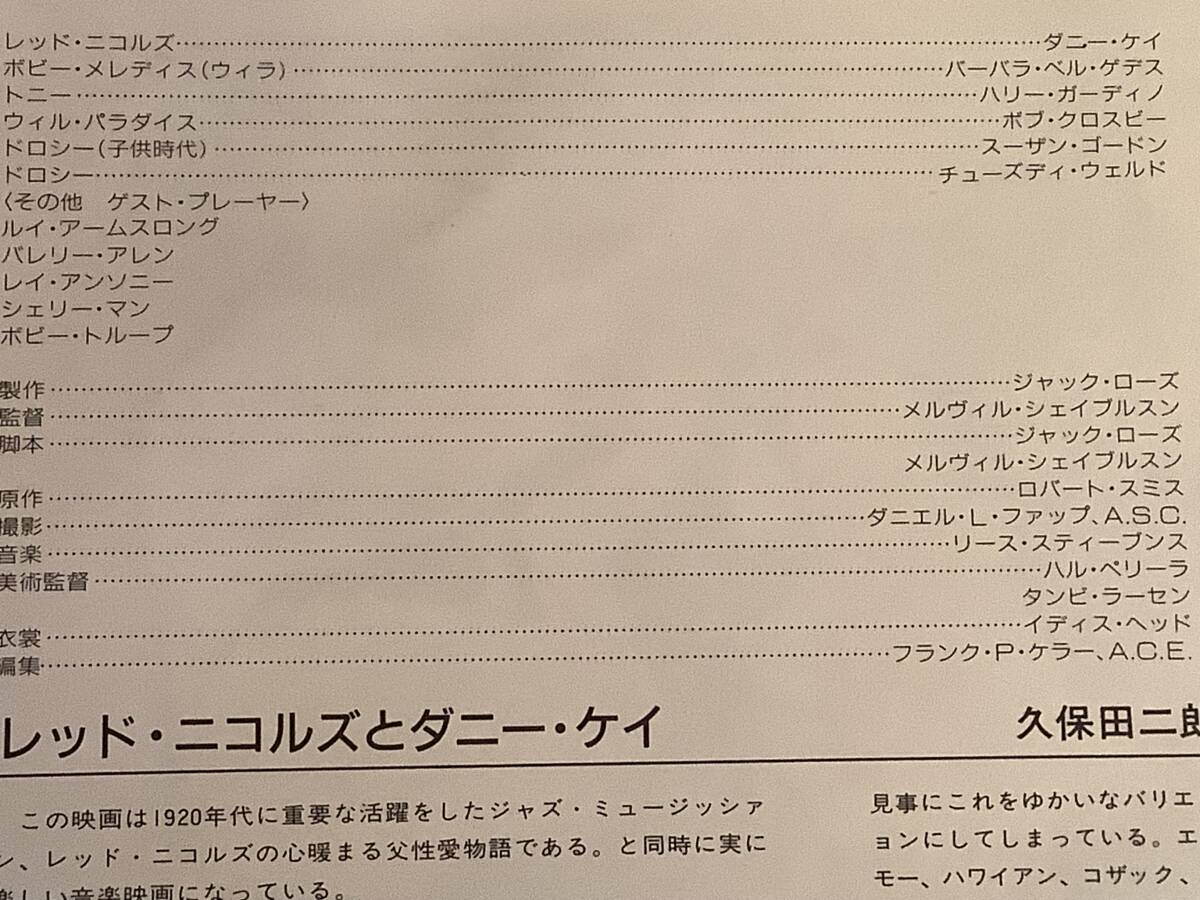 レッド・ニコルズ……ダニー・ケイ
ボビー・メレディス(ウィラ)……バーバラ・ベル・ゲデス
トニー……ハリー・ガーディノ
ウィル・パラダイス……ボブ・クロスビー
ドロシー(子供時代)……スーザン・ゴードン
ドロシー……チューズディ・ウェルド
〈その他　ゲスト・プレーヤー〉
ルイ・アームスロング
バレリー・アレン
レイ・アンソニー
シェリー・マン
ボビー・トループ
製作……ジャック・ローズ
監督……メルヴィル・シェイブルスン
脚本……ジャック・ローズ
メルヴィル・シェイブルスン
原作……ロバート・スミス
撮影……ダニエル・L・ファップ、A.S.C.
音楽……リース・スティーブンス
美術監督……ハル・ペリーラ
タンビ・ラーセン
衣裳……イディス・ヘッド
編集……フランク・P・ケラー、A.C.E.
レッド・ニコルズとダニー・ケイ　久保田二郎
この映画は1920年代に重要な活躍をしたジャズ・ミュージッシァ
ン、レッド・ニコルズの心暖まる父性愛物語である。と同時に実に
楽しい音楽映画になっている。
見事にこれをゆかいなバリエ
ョンにしてしまっている。エ
モー、ハワイアン、コザック、